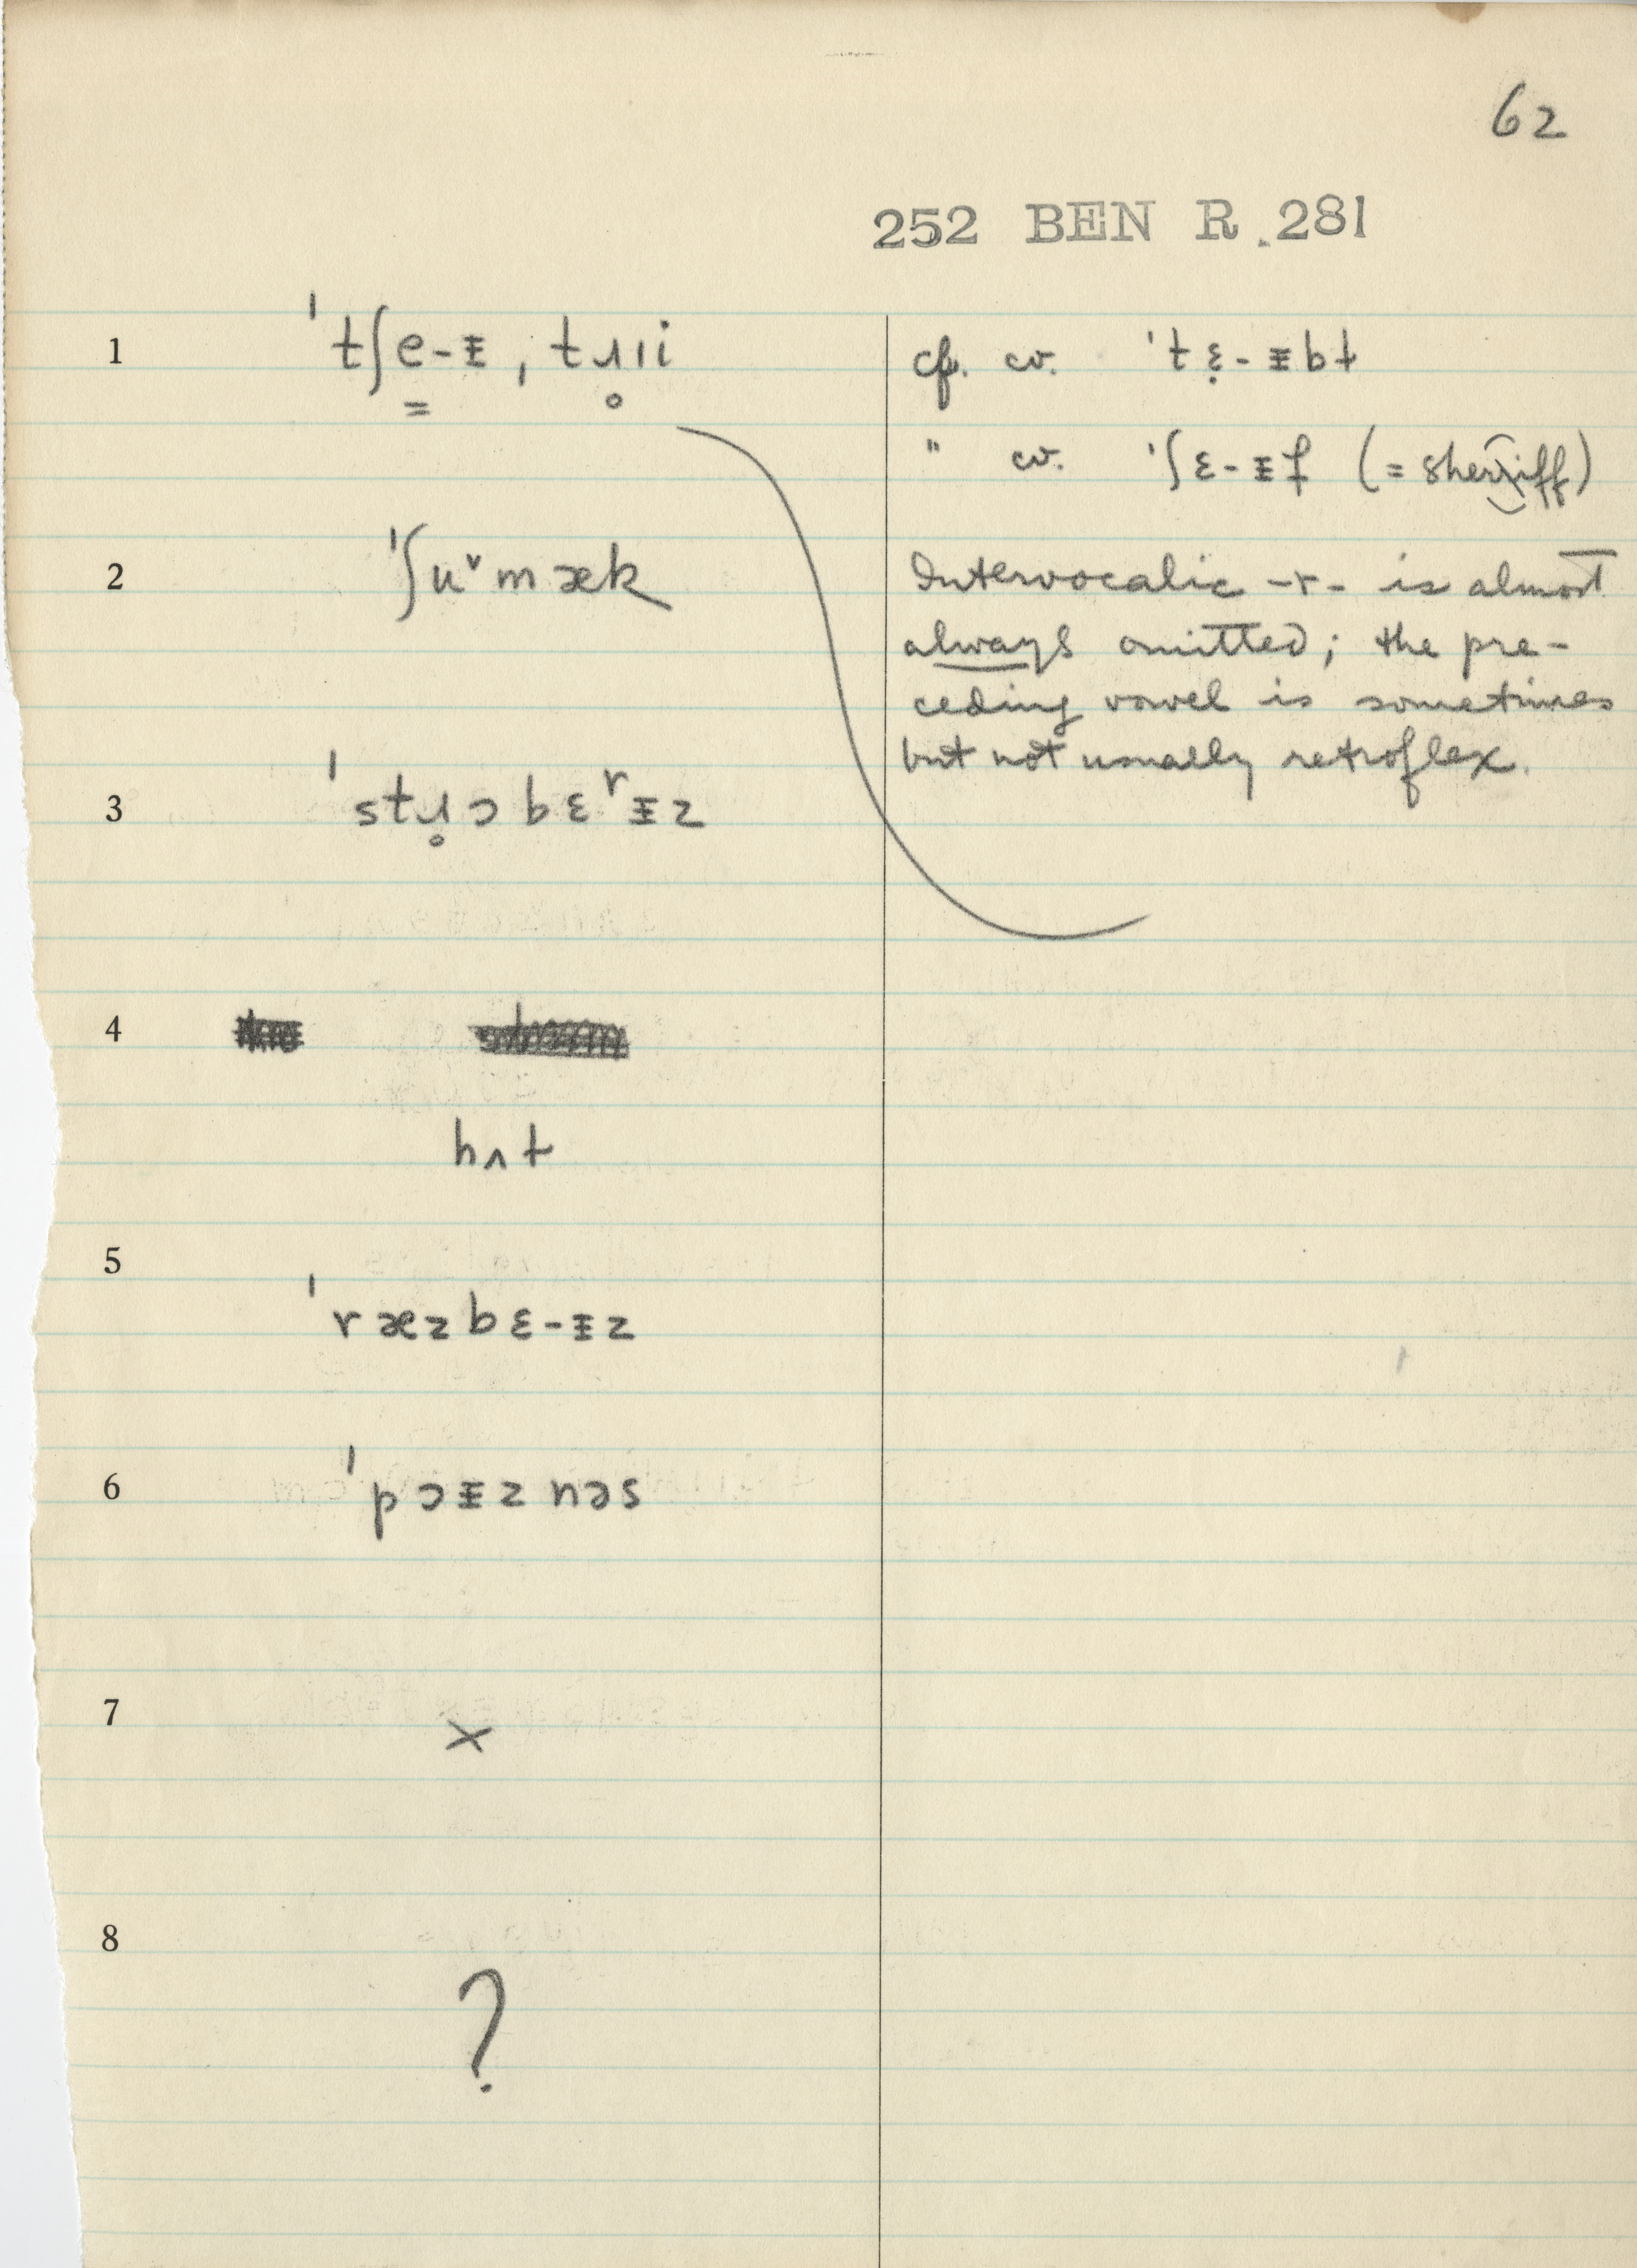 62
252 BEN R. 281
1 ˈtʃe̳-ᵻ, tɹ̥ıi
cf. cv. ˈtɛ̣-ᵻbt
" cv. ˈʃɛ-ᵻf (= sheriff)
2 ˈʃuᵛmæk
Intervocalic -r- is almost
always omitted; the pre-
ceding vowel is sometimes
but not usually retroflex.
3 ˈstɹ̥ɔbɛʳᵻz
4
hʌt
5 ˈræzbɛ-ᵻz
6 ˈpɔᵻznəs
7 ×
8 ?